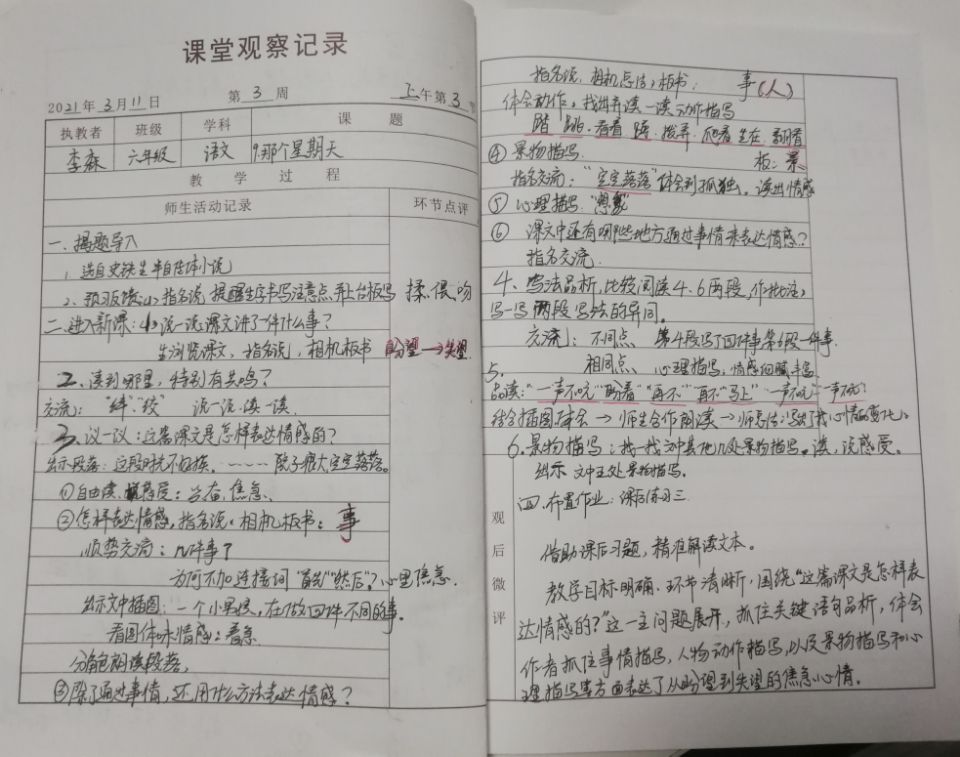 课堂观察记录
2021年3月11日 第3周 上午第3节
执教者 班级 学科 课题
李森 六年级 语文 9.那个星期天
教学过程
师生活动记录 环节点评
一、揭题导入
1、选自史铁生半自传体小说
2、预习反馈:(1)指名说,提醒生字书写注意点,再上台板写 揉、偎、吻
二、进入新课:(1)说一说课文讲了件什么事?
生浏览课文,指名说,相机板书 盼望→失望
2、读到哪里,特别有共鸣?
交流:“绊”、“绞” 说一说、读一读
3、议一议:这篇课文是怎样表达情感的?
出示段落:这段时光不好挨。……院子很大空空落落。
①自由读,感受:兴奋、焦急、
②怎样表达情感,指名说,相机板书: 事
顺势交流:几件事了
为何不加连接词“首先”“然后”?心里焦急.
出示文中插图:一个小男孩,在做四件不同的事。
看图体味情感:着急
分角色朗读段落,
③除了通过事情,还用什么方法表达情感?
指名说,相机总结,板书: 事(人)
体会动作,找出并读一读动作描写
踏 跳 看着 拨弄 爬着 坐在 翻看
④景物描写. 板:景
指名交流:“空空落落”体会到孤独。读出情感
⑤心理描写.“想象”
⑥课文中还有哪些地方通过事情来表达情感?
指名交流.
4、写法品析,比较阅读4、6两段,作批注,
写一写两段写法的异同.
交流: 不同点 第4段写了四件事第6段一件事.
5. 相同点、心理描写,情感细腻丰富
品读:“一声不吭”“盼着”“再不”“再不”“马上”“一声不吭”“一声不吭”
结合插图体会→师生合作朗读→师总结:写出了我心情的变化。
6.景物描写:找一找文中其他几处景物描写。读,说感受。
出示 文中三处景物描写.
四、布置作业:课后练习三.
观后微评
借助课后习题,精准解读文本。
教学目标明确,环节清晰,围绕“这篇课文是怎样表
达情感的?”这一主问题展开,抓住关键语句品析,体会
作者抓住事情描写,人物动作描写,以及景物描写和心
理描写等方面表达了从盼望到失望的焦急心情.